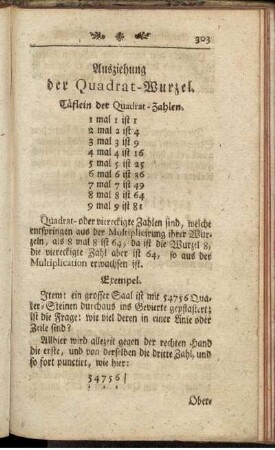 303
Ausziehung
der Quadrat-Wurzel.
Täflein der Quadrat-Zahlen.
1 mal 1 ist 1
2 mal 2 ist 4
3 mal 3 ist 9
4 mal 4 ist 16
5 mal 5 ist 25
6 mal 6 ist 36
7 mal 7 ist 49
8 mal 8 ist 64
9 mal 9 ist 81
Quadrat- oder viereckigte Zahlen sind, welche
entspringen aus der Multiplicirung ihrer Wur-
zeln, als 8 mal 8 ist 64, da ist die Wurzel 8,
die viereckigte Zahl aber ist 64, so aus der
Multiplication erwachsen ist.
Exempel.
Item: ein grosser Saal ist mit 54756 Qua-
der-Steinen durchaus ins Gevierte gepflastert:
Ist die Frage: wie viel deren in einer Linie oder
Zeile sind?
Allhier wird allezeit gegen der rechten Hand
die erste, und von derselben die dritte Zahl, und
so fort punctiret, wie hier:
54756|
Ober-